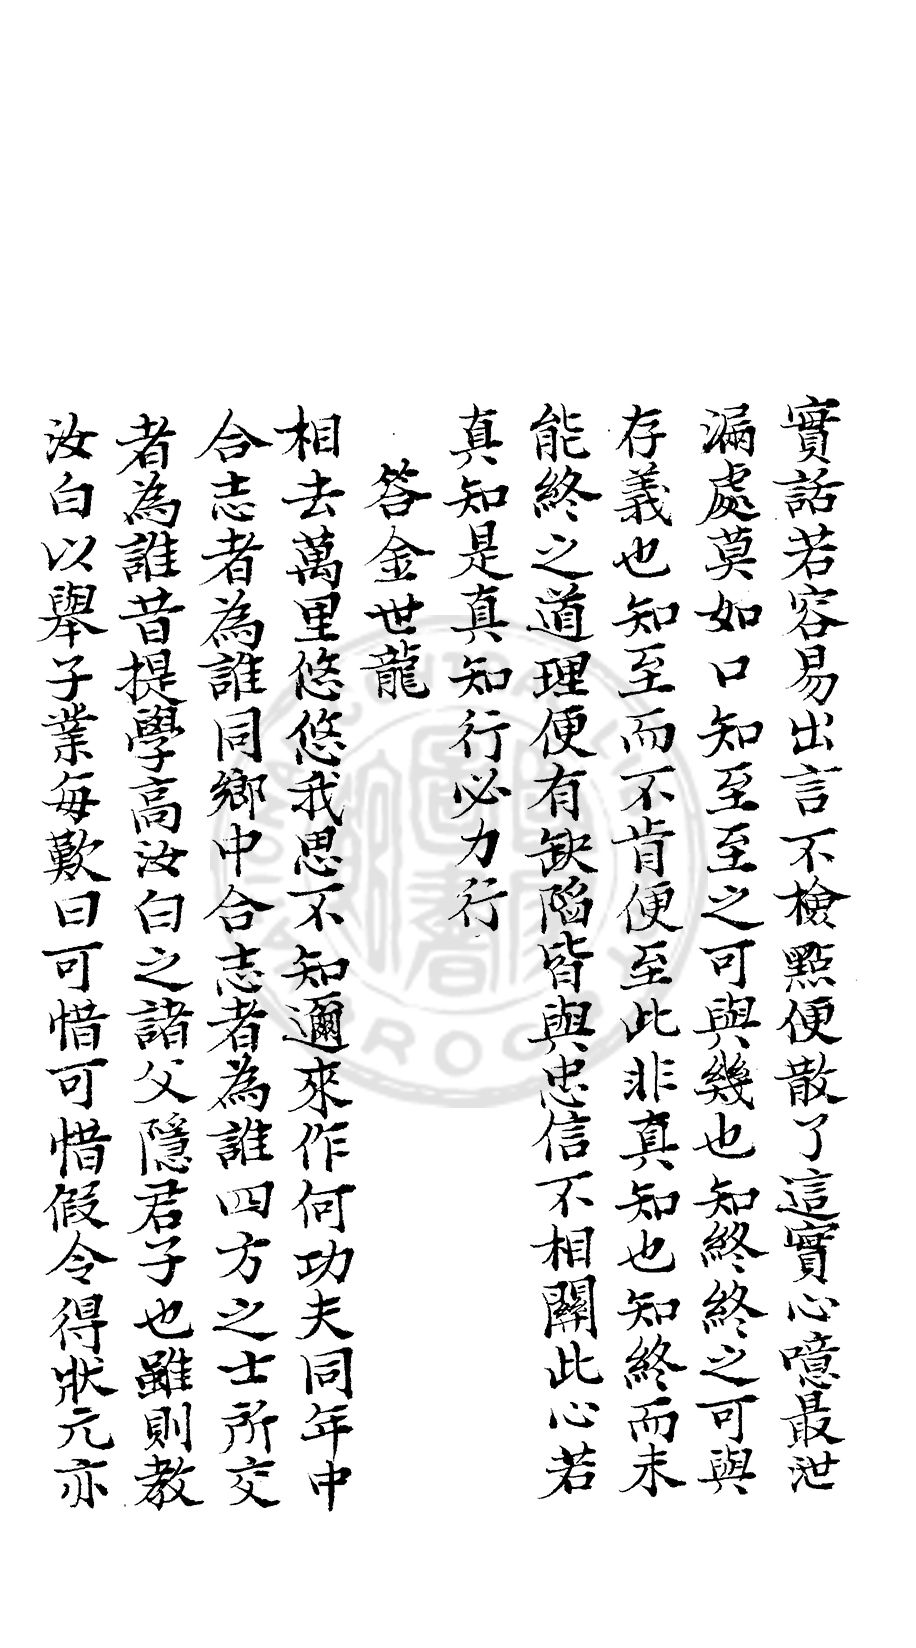 實話若容易出言不檢點便散了這實心噫最泄
漏處莫如口知至至之可與幾也知終終之可與
存義也知至而不肯便至此非真知也知終而未
能終之道理便有缺陷皆與忠信不相關此心若
真知是真知行必力行
答金世龍
相去萬里悠悠我思不知邇來作何功夫同年中
合志者為誰同鄉中合志者為誰四方之士所交
者為誰昔提學高汝白之諸父隱君子也雖則教
汝白以舉子業每歎曰可惜可惜假令得狀元亦